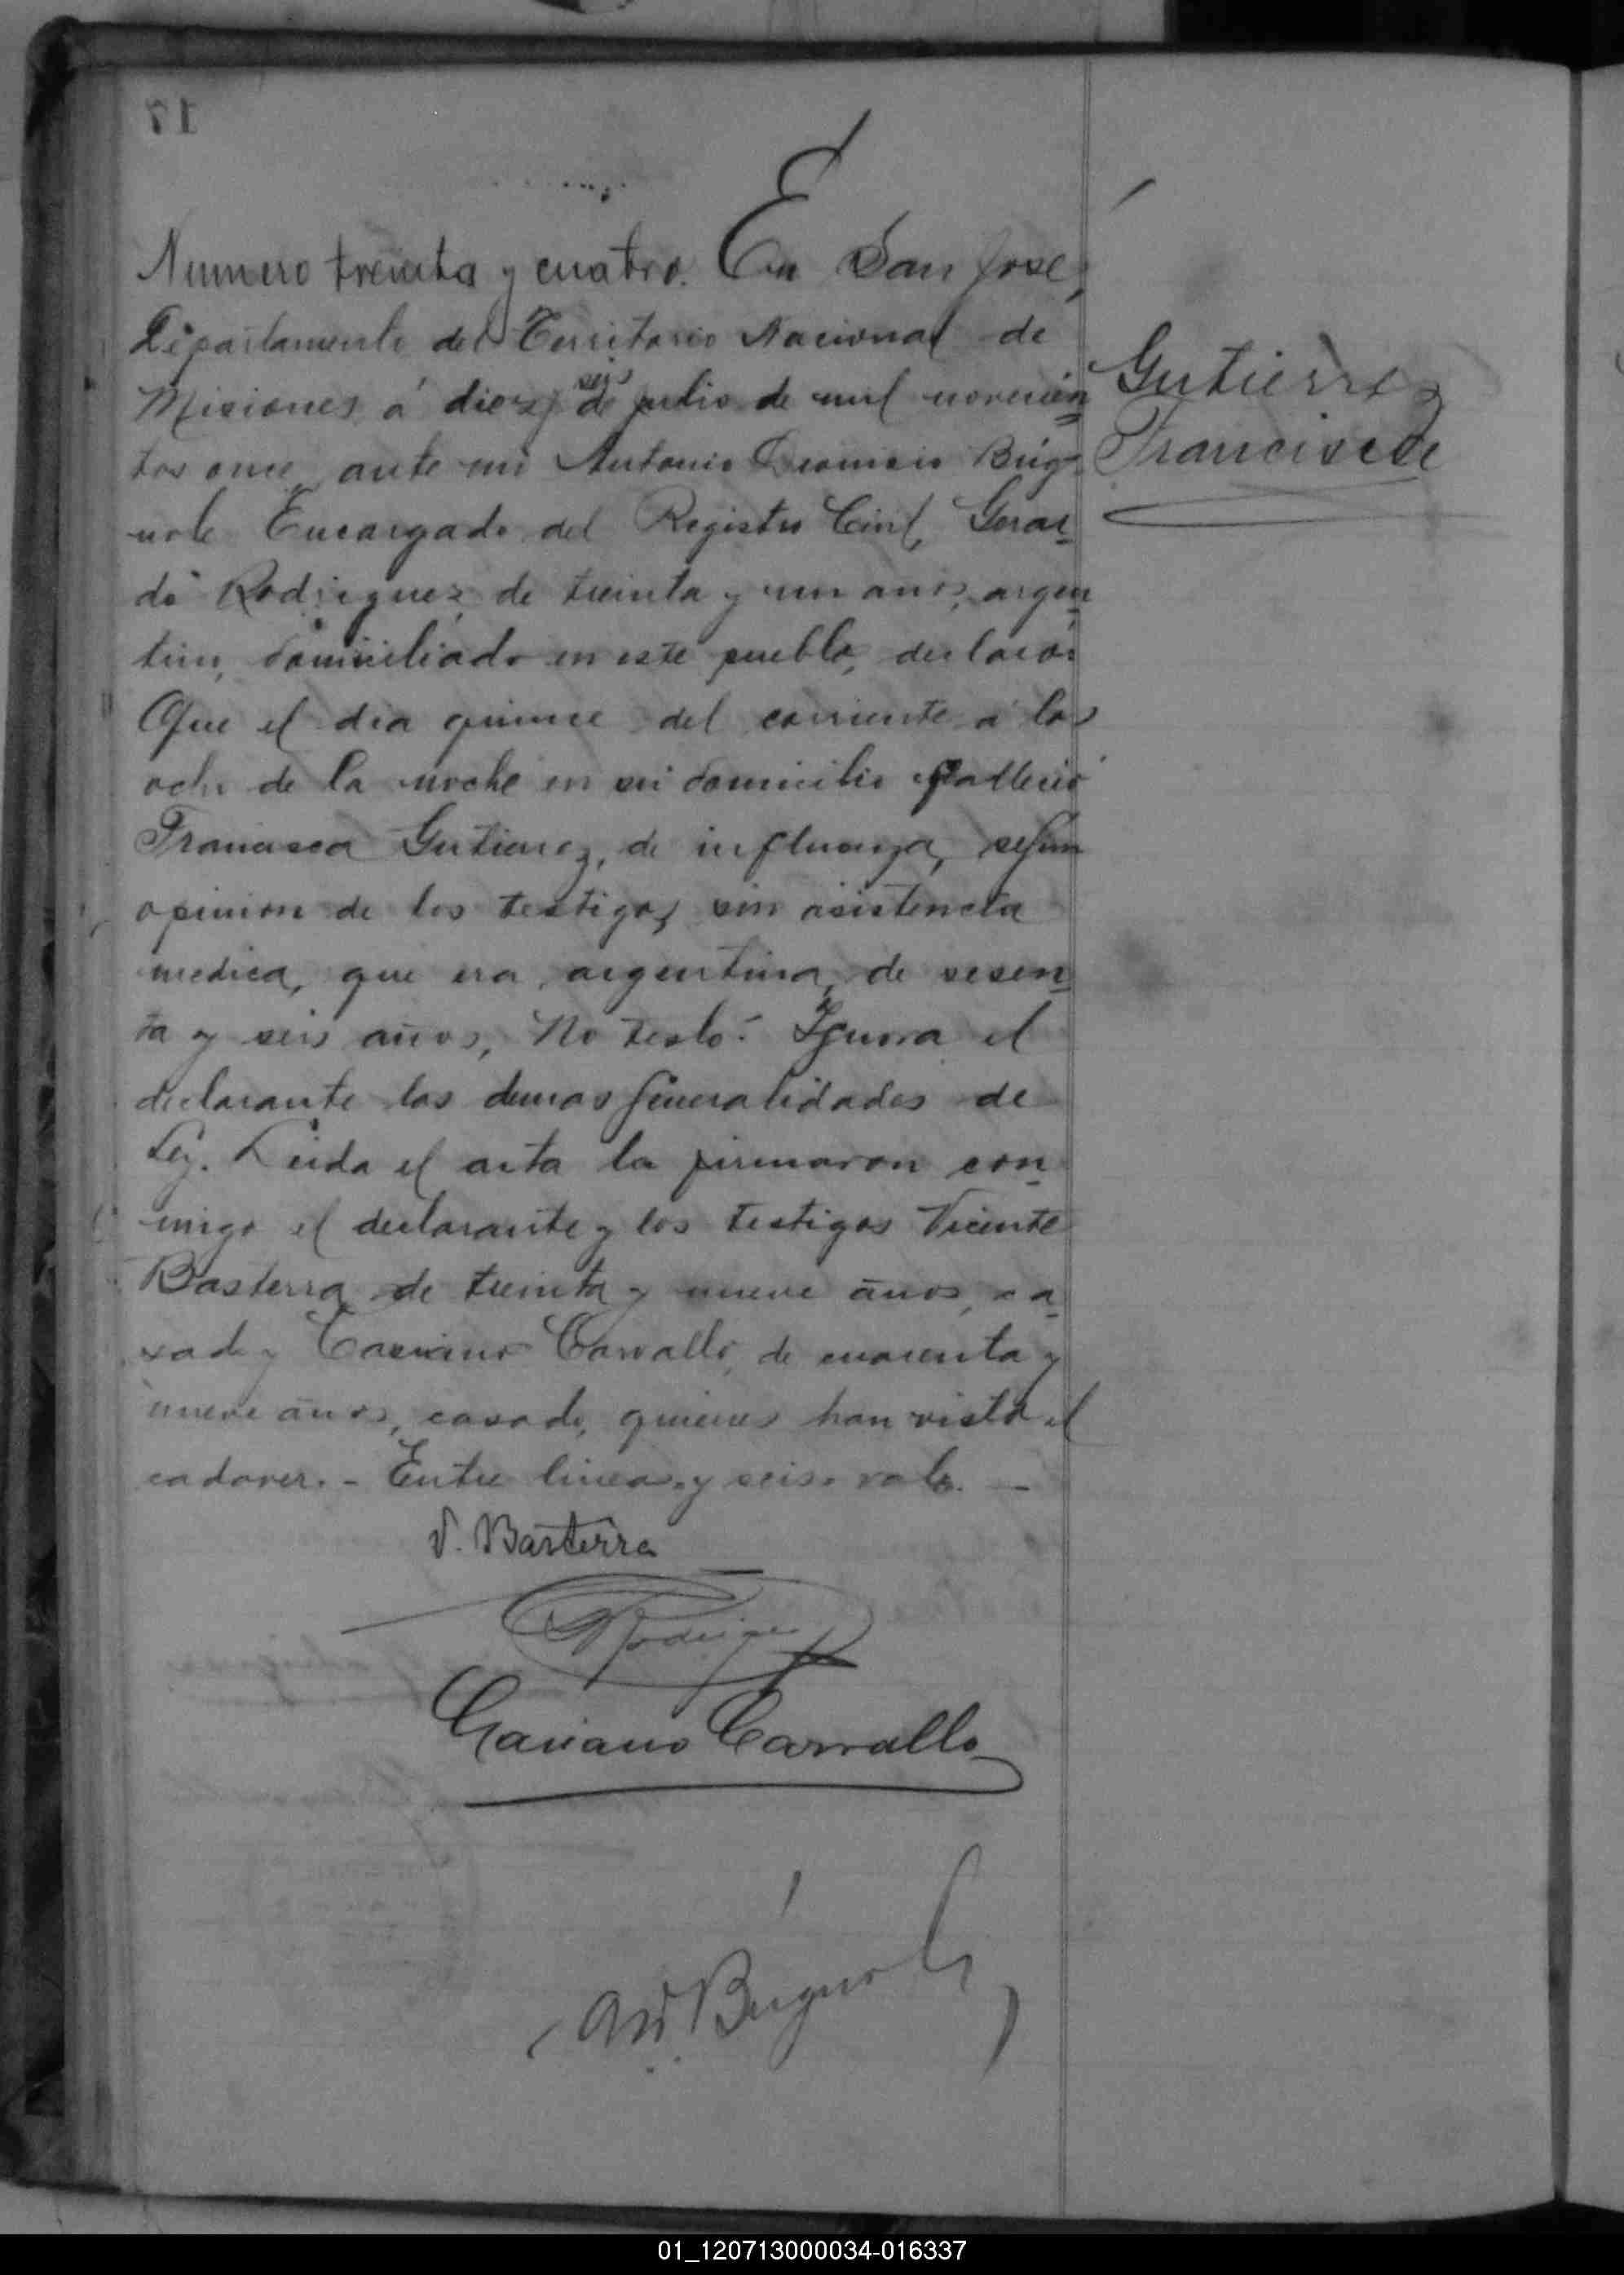 17
Numero treinta y cuatro. En San José,
Departamento del Territorio Nacional de
Misiones á diez y seis de julio de mil novecien
tos once, ante mi Antonio Dionisio Brig-
nole Encargado del Registro Civil, Gerar
do Rodriguez de treinta y un anos, argen
tino, domiciliado en este pueblo, declaró:
Que el dia quince del corriente á las
ocho de la noche en su domicilio falleció
Francisca Gutierrez, de influenza, segun
opinion de los testigos, sin asistencia
medica, que era argentina, de sesen
ta y seis años, No testó. Ignora el
declarante las demas generalidades de
Ley. Leida el acta la firmaron con
migo el declarante y los testigos Vicente
Basterra de treinta y nueve años, ca
sado y Casiano Carvallo, de cuarenta y
nueve años, casado, quienes han visto el
cadaver. - Entre lineas. y seis. vale. —
Gutierrez
Francisca
V. Basterra
Rodriguez
Casiano Carvallo
AD Brignole
01_120713000034-016337